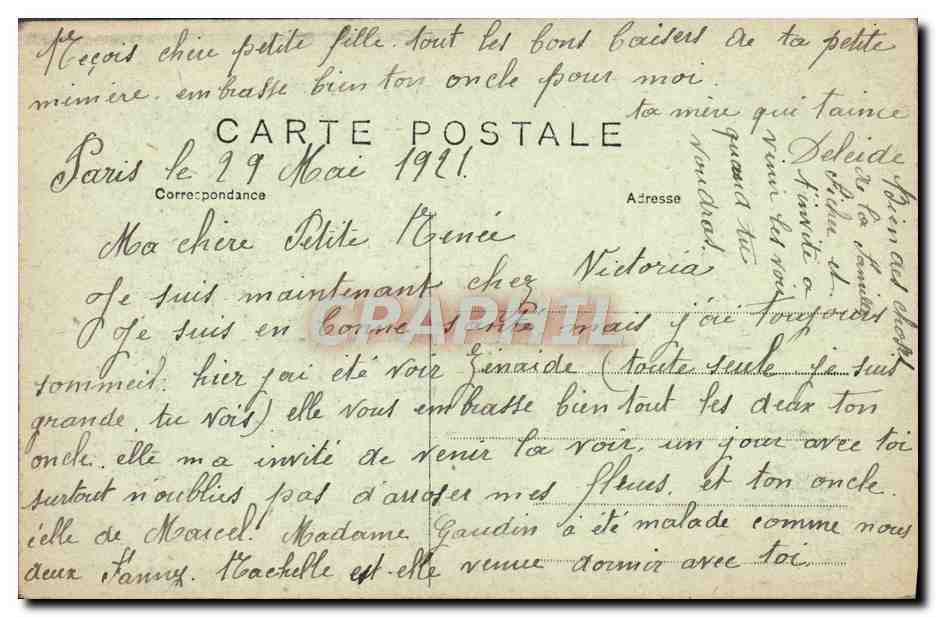 Reçois chère petite fille tout les bons baisers de ta petite
mimère. embrasse bien ton oncle pour moi
ta mère qui t'aime
CARTE POSTALE
Paris le 29 Mai 1921.
Correspondance
Adresse
Ma chère Petite Renée
Je suis maintenant chez Victoria
Je suis en bonne santé mais j'ai toujours
sommeil. hier j'ai été voir Zénaide (toute seule je suis
grande, tu vois) elle vous embrasse bien tout les deux ton
oncle. elle m a invité de venir la voir, un jour avec toi
surtout n'oublies pas d'arroser mes fleurs, et ton oncle.
celle de Marcel. Madame Gaudin à été malade comme nous
deux Fanny. Rachelle est-elle venue dormir avec toi.
bien des choses
de la famille
Pichu et
t'invite à
venir les voir
quand tu
voudras.
CPAPHIL